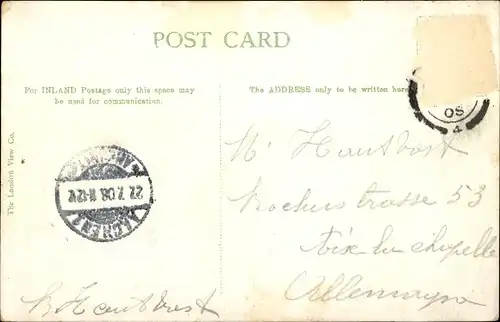 POST CARD
For INLAND Postage only this space may
be used for communication.
The ADDRESS only to be written here
The London View Co.
08
4
AACHEN 1
27.7.08.11-12V
Mr Hautvast
strasse 53
Aix la chapelle
Allemagne
Hautvast